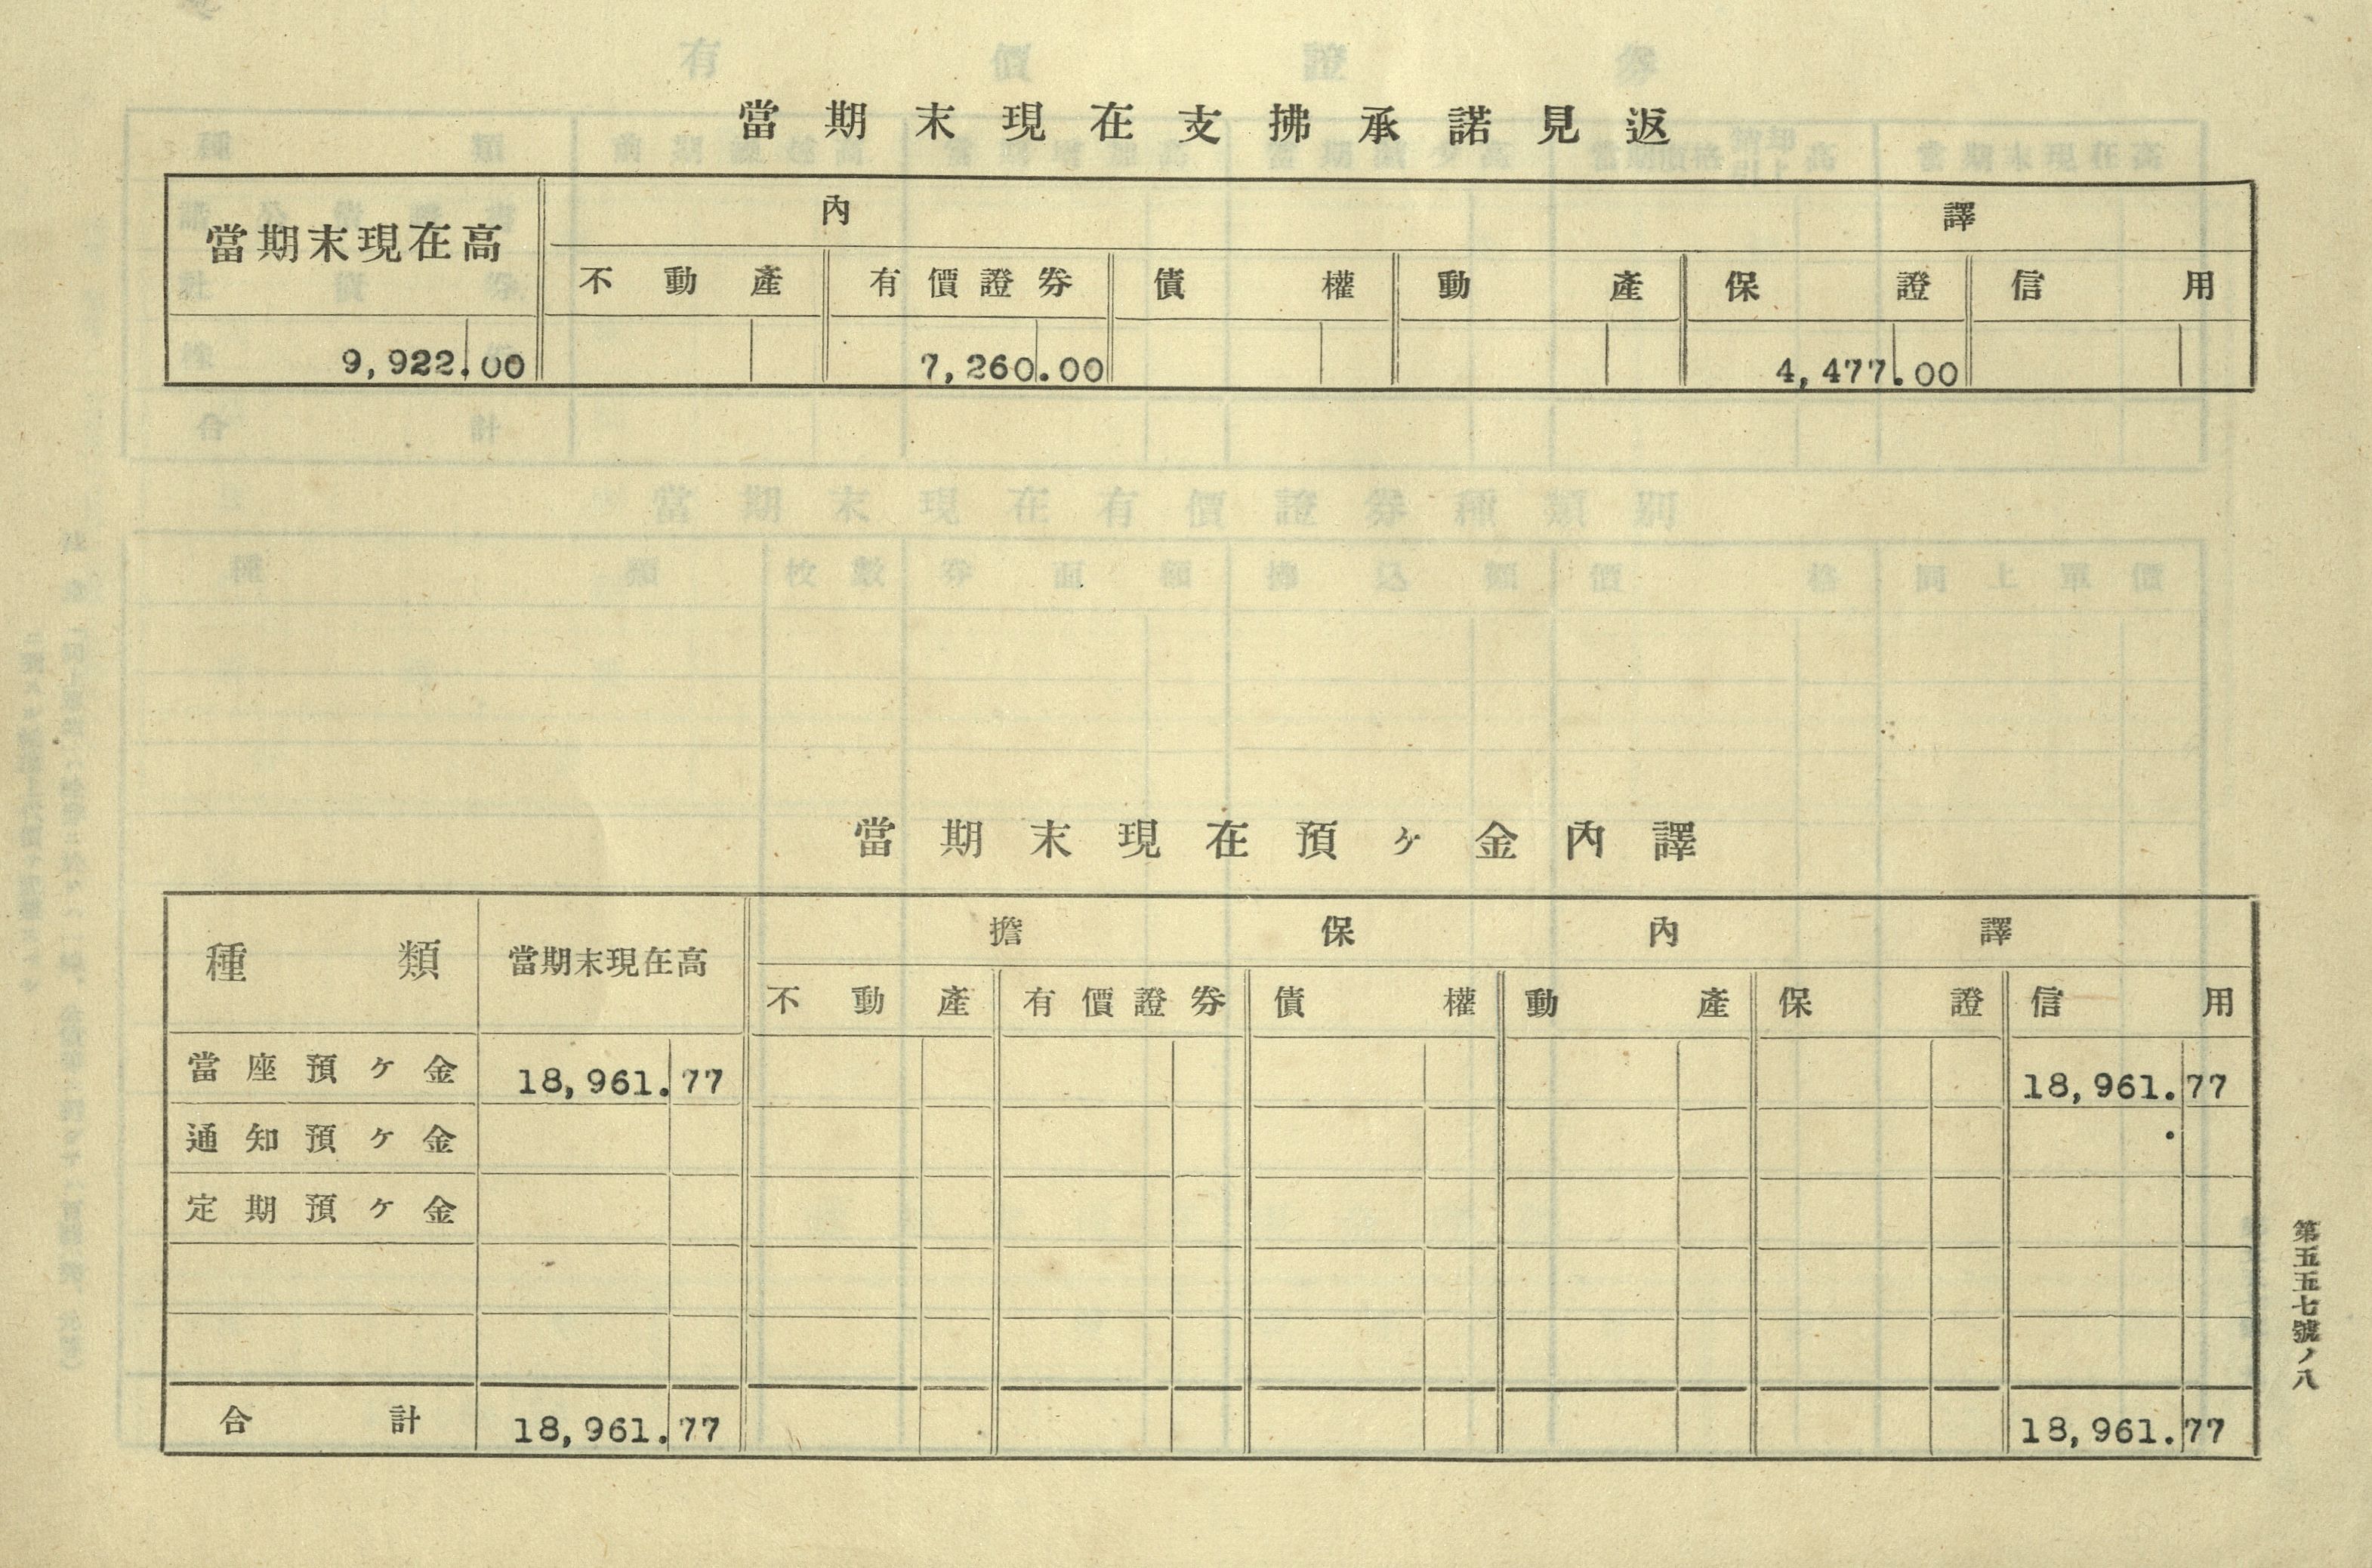 當期末現在支拂承諾見返
當期末現在高 內譯
不動產 有價證券 債權 動產 保證 信用
9,922.00 7,260.00 4,477.00
當期末現在預ヶ金內譯
種類 當期末現在高 擔保內譯
不動產 有價證券 債權 動產 保證 信用
當座預ヶ金 18,961.77 18,961.77
通知預ヶ金
定期預ヶ金
合計 18,961.77 18,961.77
第五五七號ノ八